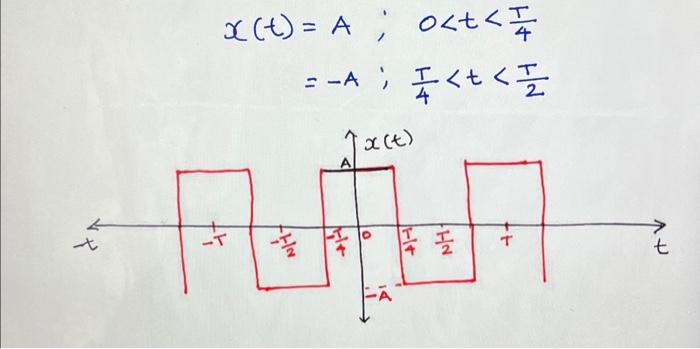 x(t) = A ; 0<t<T/4
= -A ; T/4<t<T/2
x(t)
A
-t -T -T/2 -T/4 0 T/4 T/2 T t
-A